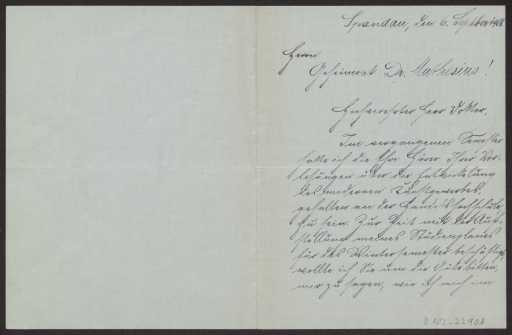 Spandau, den 6. September 1908
Herrn
Geheimrat Dr. Muthesius!
Geehrtester Herr Doktor.
Im vergangenen Semester
hatte ich die Ehre Hörer Ihrer Vor-
lesungen über die Entwickelung
des modernen Kunstgewerbes,
gehalten an der Handelshochschule
zu sein. Zur Zeit mit der Auf-
stellung meines Studienplanes
für das Wintersemester beschäftigt,
wollte ich Sie um die Güte bitten,
mir zu sagen, wie ich mich im